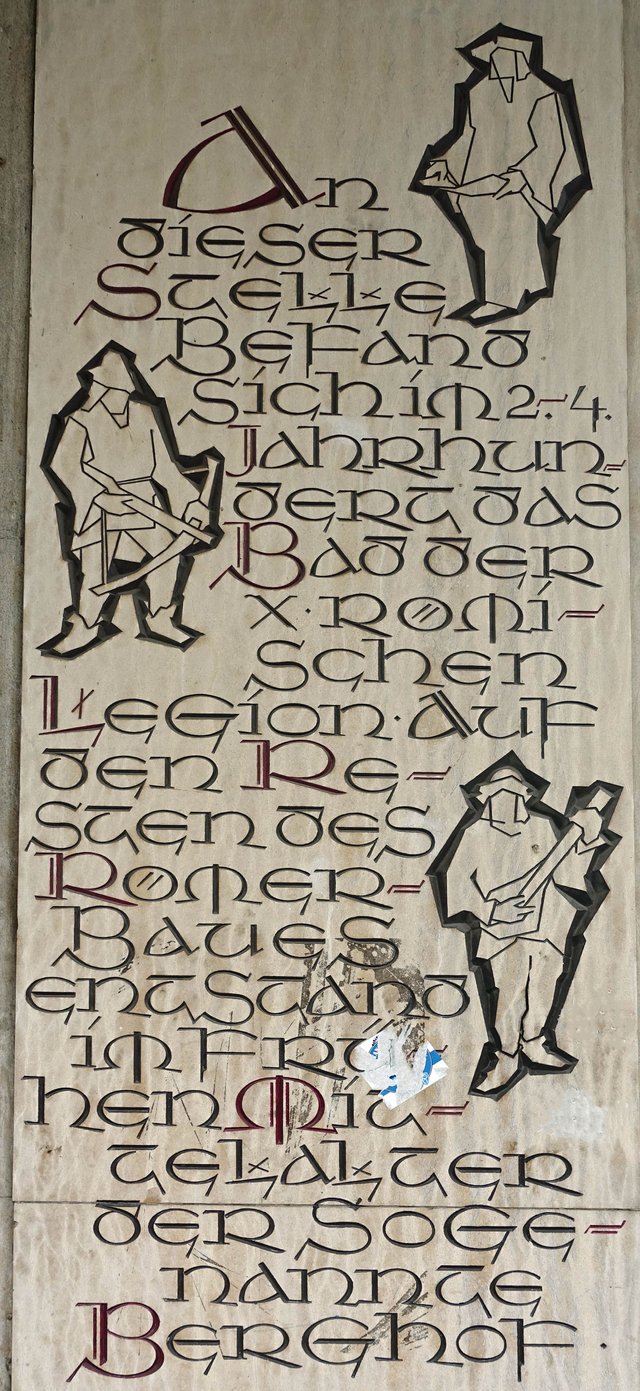 An
dieser
Stelle
Befand
sich im 2.-4.
Jahrhun-
dert das
Bad der
X. Römi-
schen
Legion. Auf
den Re-
sten des
Römer-
Baues
entstand
im
hen Mit-
telalter
der Soge-
nannte
Berghof.